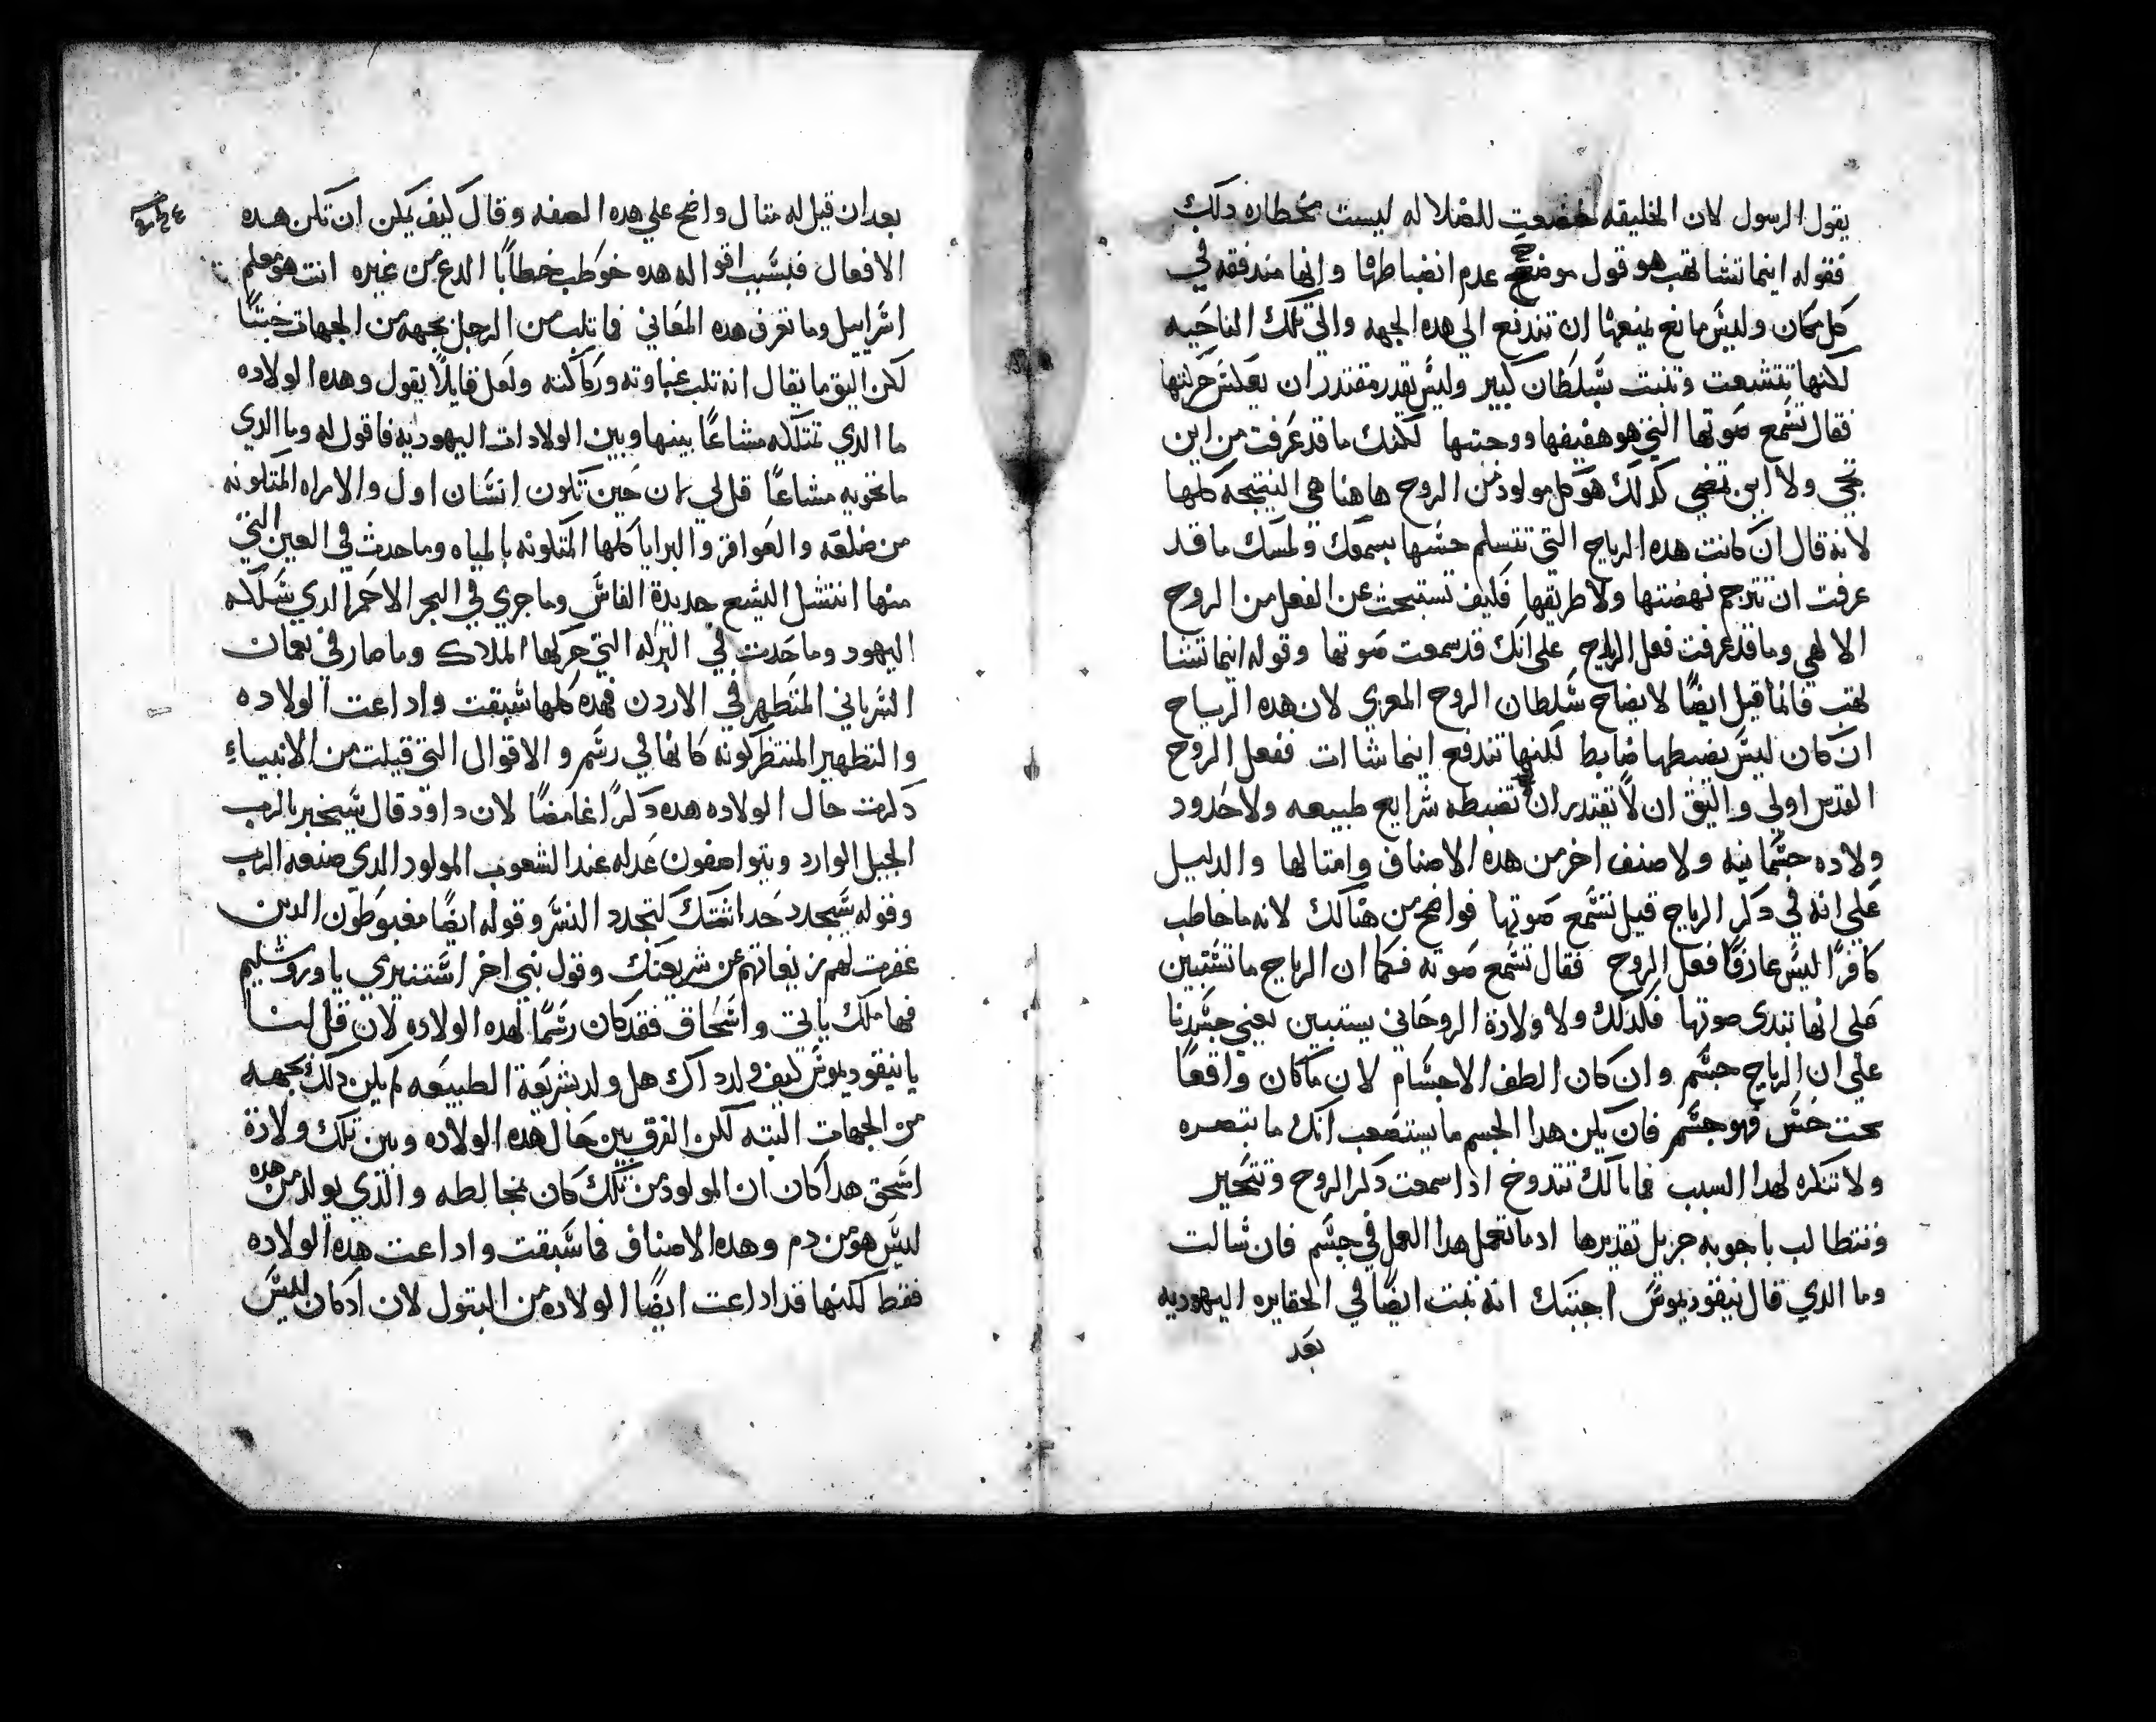 يقول الرسول لان الخليقه خضعت للضلاله ليست مختاره دلك
فقوله اينما تشا تهب هو قول موضح عدم انضباطها وانها مندفقه في
كل مكان وليس مانع يمنعها ان تندفع الي هده الجهه والي تلك الناحيه
لكنها تتشعت وتنبت بسلطان كبير وليس يقدر مقتدر ان يعكس حركتها
فقال تسمع صوتها التي هو هفيفها ووحتها لكنك ما قد عرفت من اين
تجي ولا اين تمضي كدلك هو كل مولود من الروح هاهنا هي النتيجه كلها
لانه قال ان كانت هده الرياح التي تتسلم حسها بسمعك ولمسك ما قد
عرفت ان تترجم نهضتها ولا طريقها فكيف تستبحت عن الفعل من الروح
الالهي وما قد عرفت فعل الرياح علي انك قد سمعت صوتها وقوله اينما تشا
تهب فانما قيل ايضًا لايضاح سلطان الروح المعزي لان هده الرياح
ان كان ليس يضبطها ضابط لكنها تندفع اينما شاات ففعل الروح
القدس اولي واليق ان لا تقتدر ان تضبطه شرايع طبيعه ولا حدود
ولاده جسمانيه ولا صنف اخر من هده الاصناف وامتالها والدليل
علي انه في دكر الرياح قيل تسمع صوتها فواضح من هنالك لانه ما خاطب
كافرًا ليس عارفًا فعل الروح فقال تسمع صوته فكما ان الرياح ما تستبين
علي انها تبدي صوتها فكدلك ولا ولادة الروحاني يستبين لعيني جسدنا
علي ان الرياح جسم وان كان الطف الاجسام لان ما كان واقعًا
تحت حس فهو جسم فان يكن هدا الجسم ما يستصعب انك ما تبصره
ولا تنكره لهدا السبب فما بالك تتدوخ ادا سمعت دكر الروح وتتحير
وتتطالب باجوبه جزيل تقديرها اد ما تعمل هدا العمل في جسم فان سالت
وما الدي قال نيقوديموس اجبتك انه تبت ايضًا في الحقايره اليهوديه
بعد
بعد ان قيل له متال واضح علي هده الصفه وقال كيف يمكن ان تكن هده
الافعال فبسبب اقواله هده خوطب خطابًا الدع من غيره انت هو معلم
اسراييل وما تعرف هده المعاني فما تلب من الرجل بجهه من الجهات خبتًا
لكن اليق ما يقال انه تلب غباوته وركاكته ولعل قايلًا يقول وهده الولاده
ما الدي تمتلكه مشاعًا بينها وبين الولادات اليهوديه فاقول له وما الدي
ما تحويه مشاعًا قل لي لان حين تكون انسان اول والامراه المتكونه
من ضلعه والعواقر والبرايا كلها المتكونه بالمياه وما حدث في العين التي
منها انتشل اليشع حديدة الفاس وما جري في البحر الاحمر الدي سلكه
اليهود وما حدت في البركه التي حركها الملاك وما صار في نعمان
السرياني المتطهر في الاردن فهده كلها سبقت واداعت الولاده
والتطهير المنتظر كونه كانها في رسم والاقوال التي قيلت من الانبياء
دكرت حال الولاده هده دكرًا غامضًا لان داود قال سيخبر بالرب
الجيل الوارد ويتواصفون عدله عند الشعوب المولود الدي صنعه الرب
وقوله سيجدد حداثتك كتجدد النسر وقوله ايضًا مغبوطون الدين
غفرت لهم زيغاتهم عن شريعتك وقول نبي اخر استنيري ياوروشليم
فها ملك ياتي واسحاق فقد كان رسمًا لهده الولاده لان قل لنا
يا نيقوديموس كيف ولد داك هل ولد بشريعة الطبيعه لم يكن دلك بجهه
من الجهات البته لكن الفرق بين حال هده الولاده وبين تلك ولادة
اسحق هدا كان ان المولود من تلك كان مخالطه والذي يولد من هده
ليس هو من دم وهده الاصناف فما سبقت واداعت هده الولاده
فقط لكنها قد اداعت ايضًا الولاده من البتول لان اد كان ليس